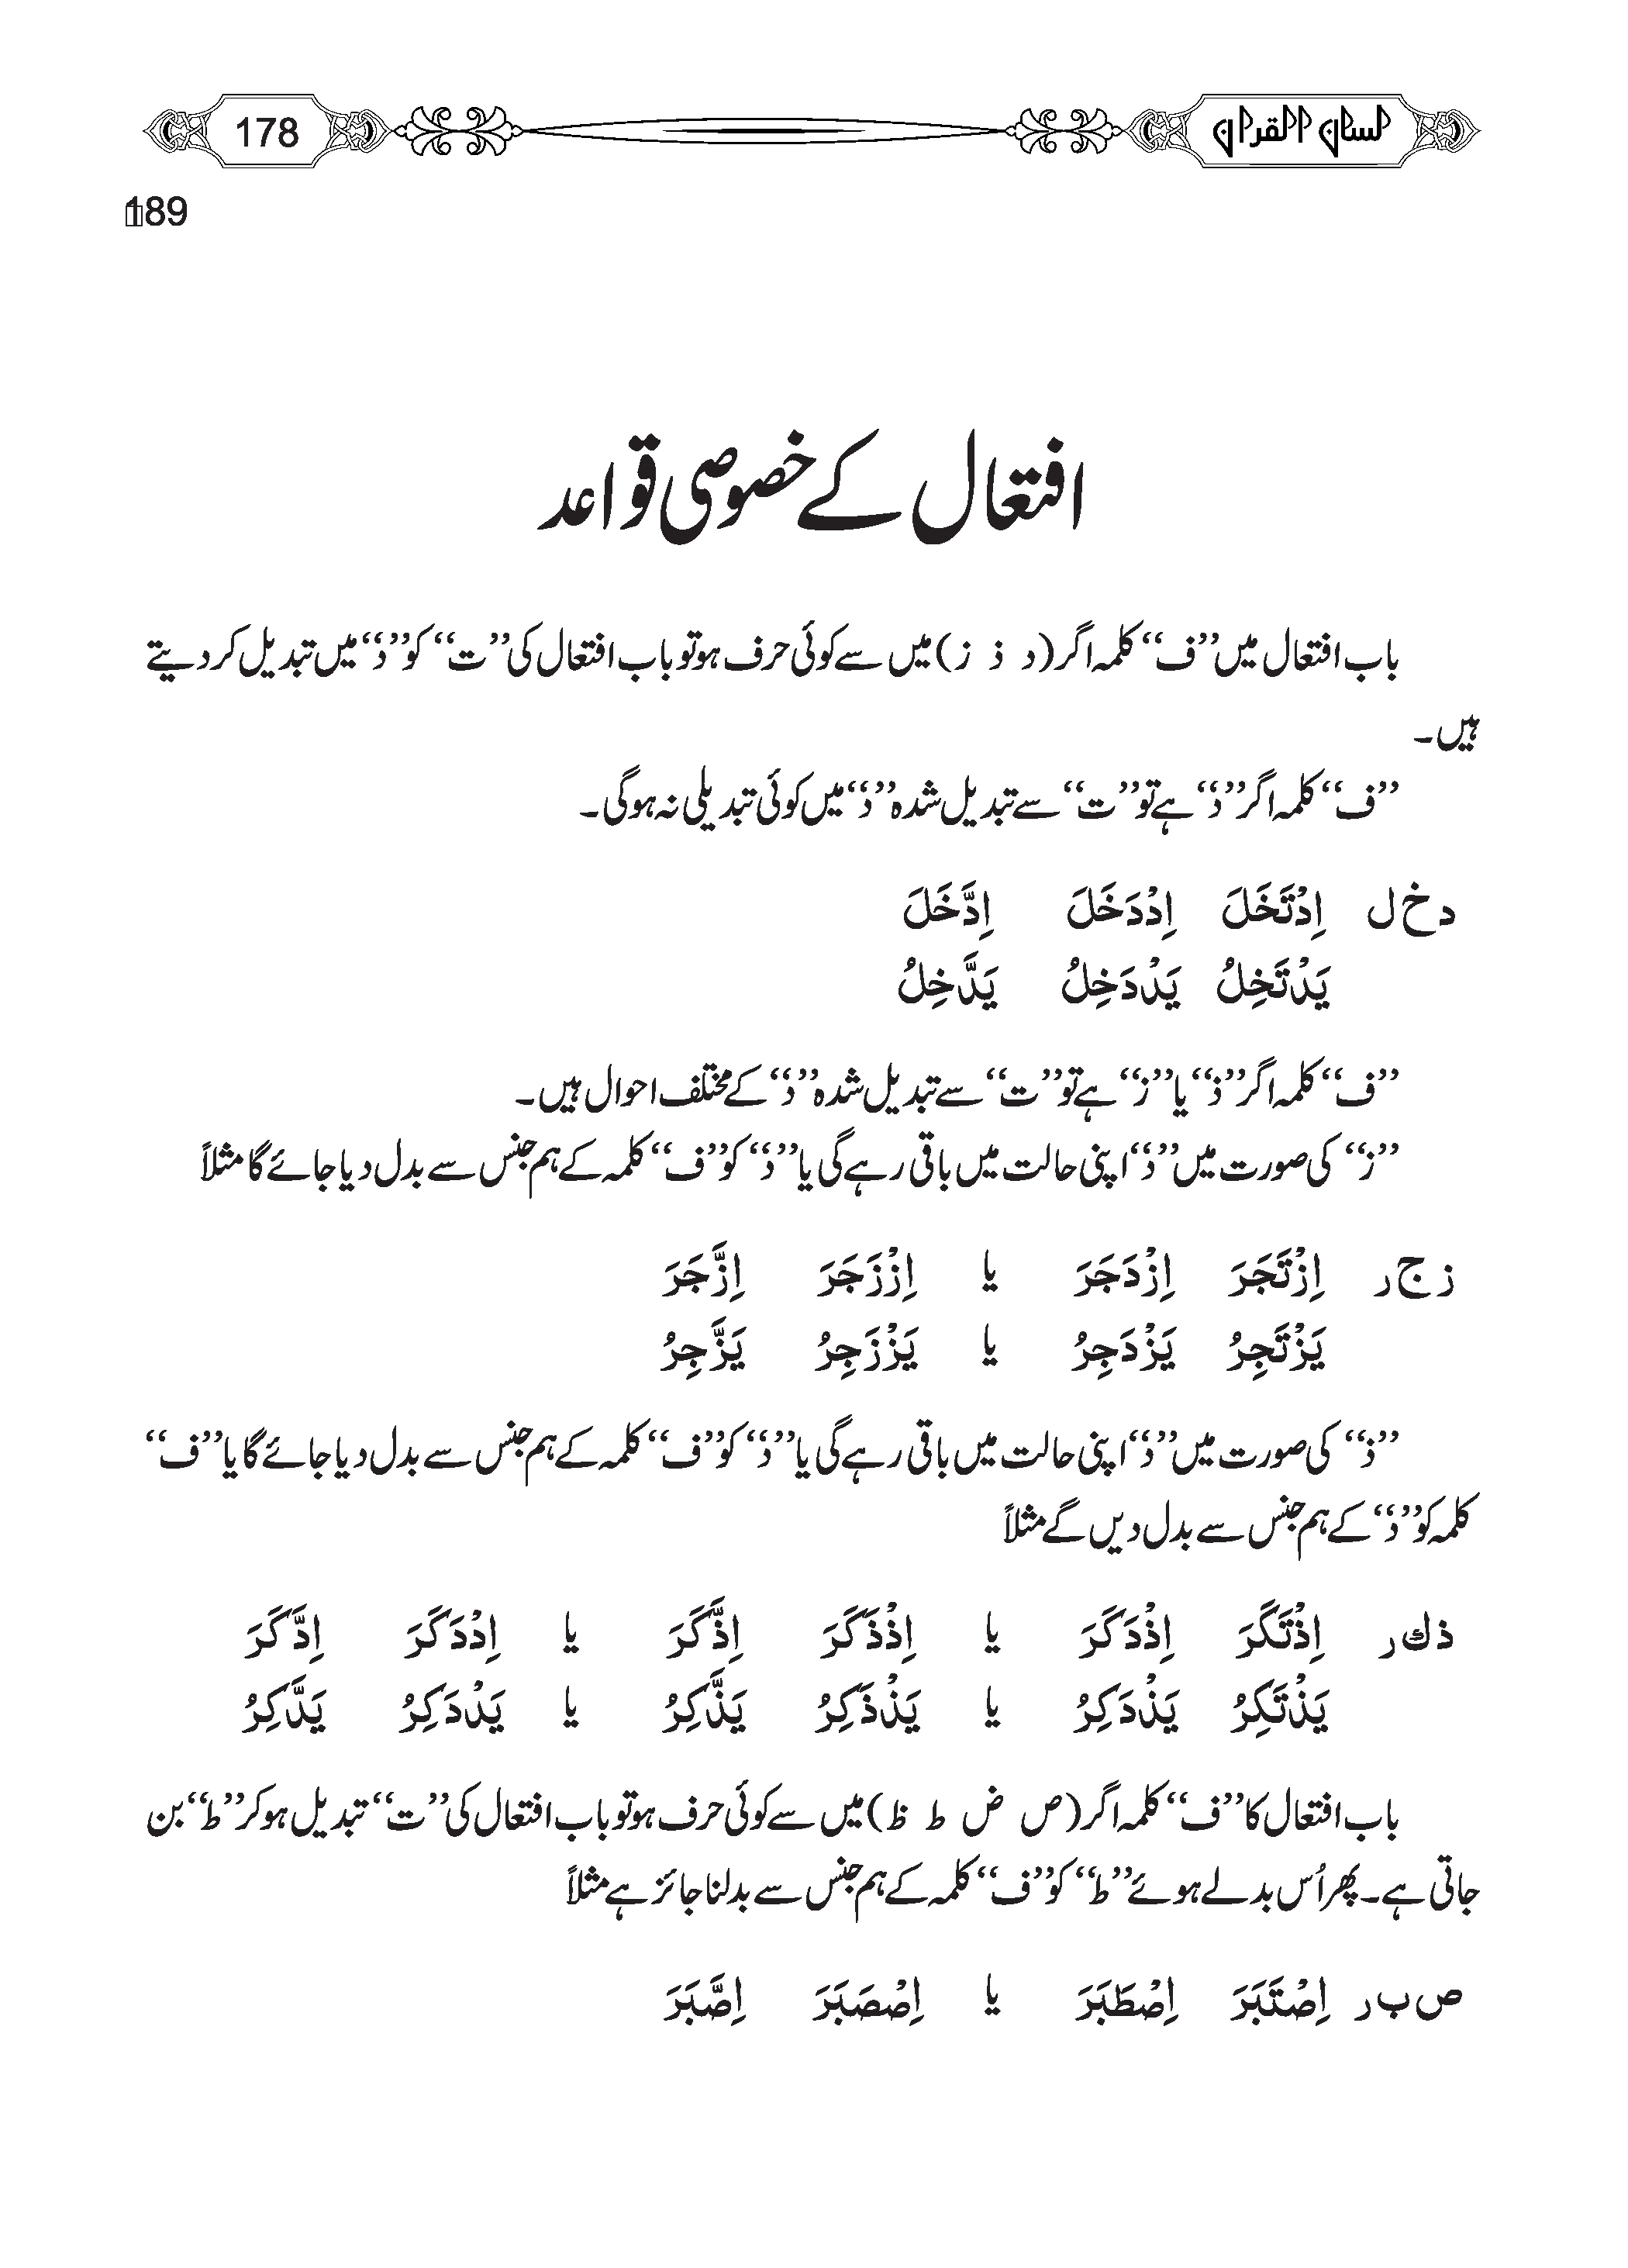 لسان القرآن 178
189
افتعال کے خصوصی قواعد
باب افتعال میں ”ف“ کلمہ اگر (د ذ ز) میں سے کوئی حرف ہو تو باب افتعال کی ”ت“ کو ”د“ میں تبدیل کر دیتے
ہیں۔
”ف“ کلمہ اگر ”د“ ہے تو ”ت“ سے تبدیل شدہ ”د“ میں کوئی تبدیلی نہ ہوگی۔
د خ ل اِدْتَخَلَ اِدْدَخَلَ اِدَّخَلَ
یَدْتَخِلُ یَدْدَخِلُ یَدَّخِلُ
”ف“ کلمہ اگر ”ذ“ یا ”ز“ ہے تو ”ت“ سے تبدیل شدہ ”د“ کے مختلف احوال ہیں۔
”ز“ کی صورت میں ”د“ اپنی حالت میں باقی رہے گی یا ”د“ کو ”ف“ کلمہ کے ہم جنس سے بدل دیا جائے گا مثلاً
ز ج ر اِزْتَجَرَ اِزْدَجَرَ یا اِزْزَجَرَ اِزَّجَرَ
یَزْتَجِرُ یَزْدَجِرُ یا یَزْزَجِرُ یَزَّجِرُ
”ذ“ کی صورت میں ”د“ اپنی حالت میں باقی رہے گی یا ”د“ کو ”ف“ کلمہ کے ہم جنس سے بدل دیا جائے گا یا ”ف“
کلمہ کو ”د“ کے ہم جنس سے بدل دیں گے مثلاً
ذ ك ر اِذْتَكَرَ اِذْدَكَرَ یا اِذْذَكَرَ اِذَّكَرَ یا اِدْدَكَرَ اِدَّكَرَ
یَذْتَكِرُ یَذْدَكِرُ یا یَذْذَكِرُ یَذَّكِرُ یا یَدْدَكِرُ یَدَّكِرُ
باب افتعال کا ”ف“ کلمہ اگر (ص ض ط ظ) میں سے کوئی حرف ہو تو باب افتعال کی ”ت“ تبدیل ہو کر ”ط“ بن
جاتی ہے۔ پھر اُس بدلے ہوئے ”ط“ کو ”ف“ کلمہ کے ہم جنس سے بدلنا جائز ہے مثلاً
ص ب ر اِصْتَبَرَ اِصْطَبَرَ یا اِصْصَبَرَ اِصَّبَرَ